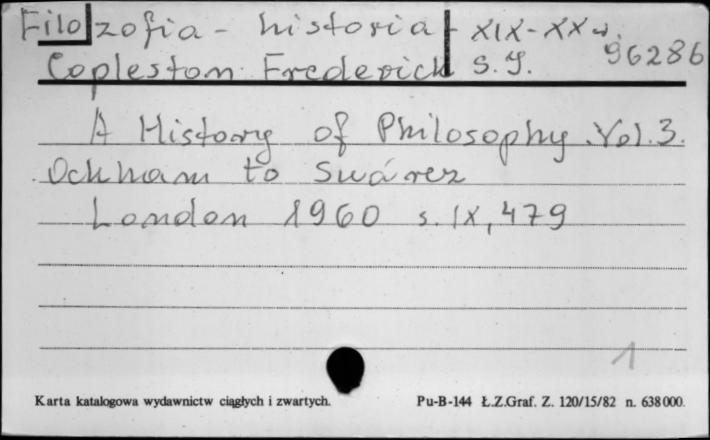 Filozofia - historia - XIX-XX w.
96286
Copleston Frederick S.J.
A History of Philosophy. Vol. 3.
Ockham to Suárez
London 1960 s. IX, 479
1
Karta katalogowa wydawnictw ciągłych i zwartych.
Pu-B-144 Ł.Z.Graf. Z. 120/15/82 n. 638 000.